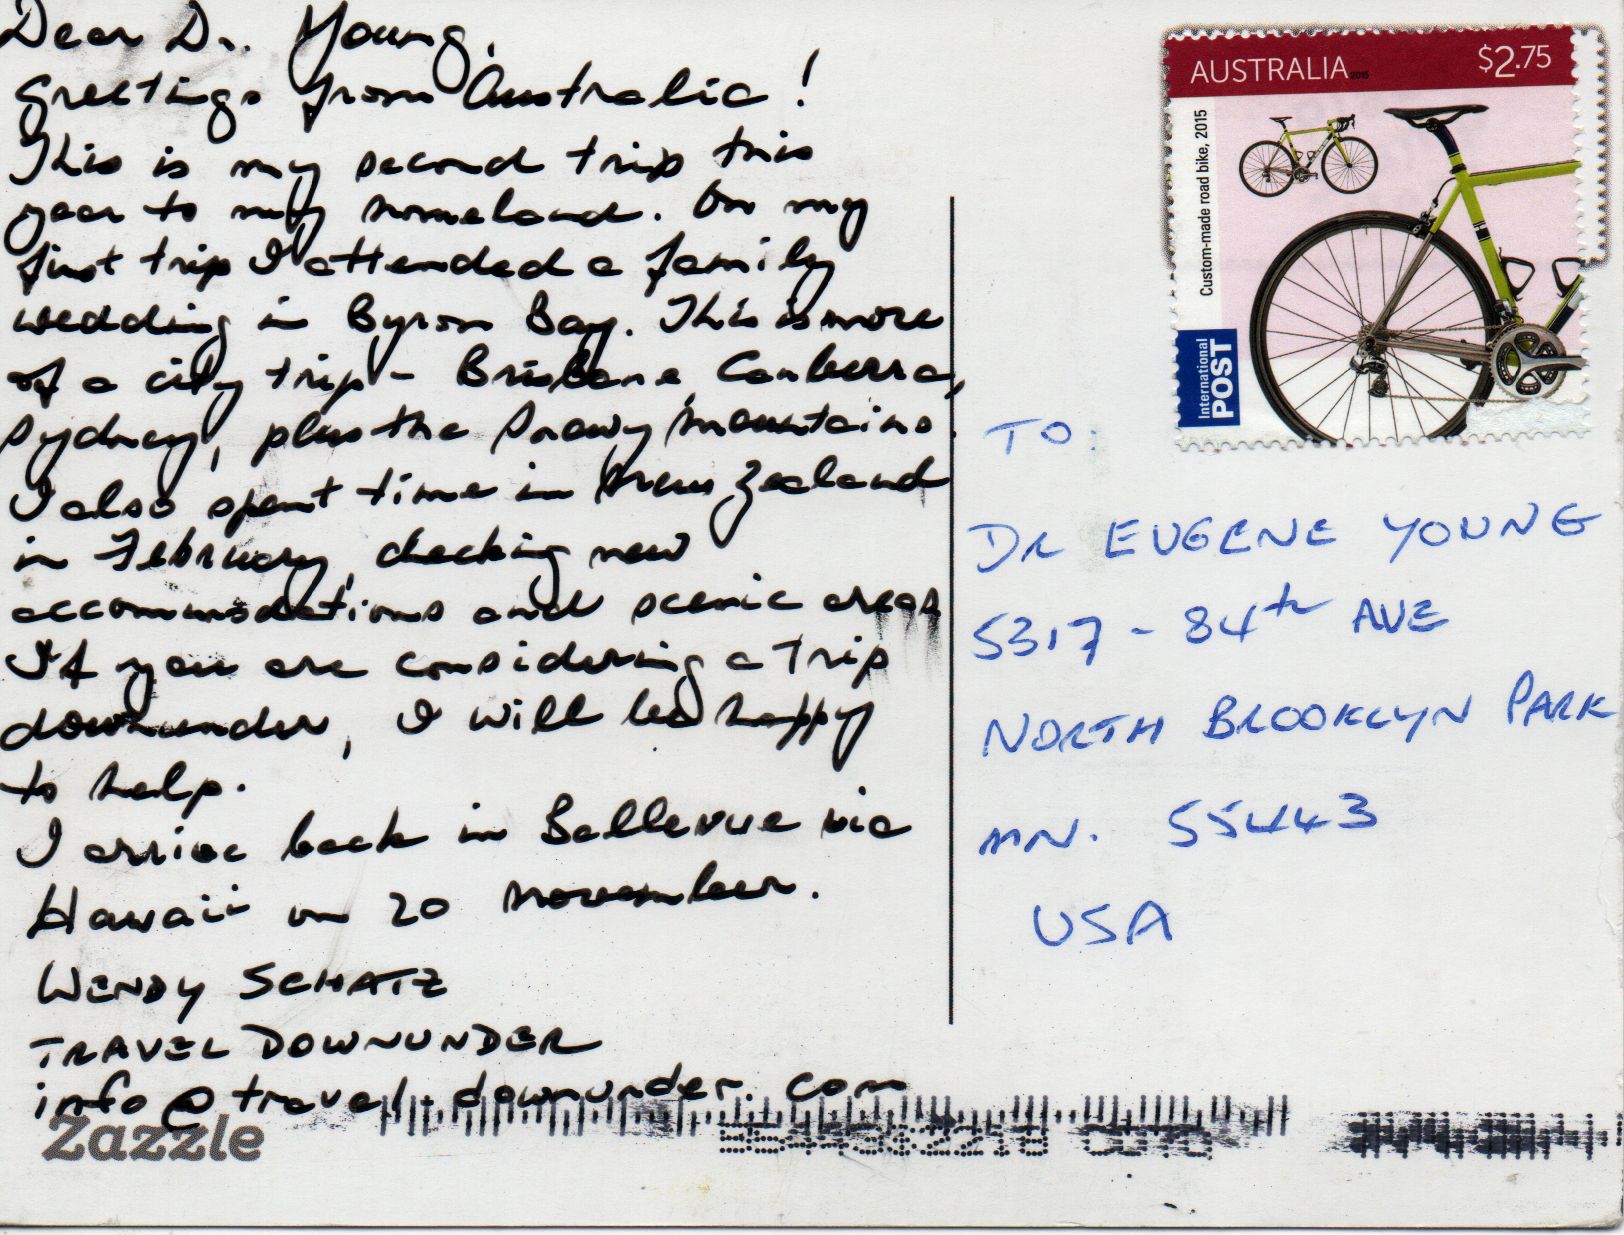 Dear Dr. Young,
Greetings from Australia!
This is my second trip this
year to my homeland. On my
first trip I attended a family
wedding in Byron Bay. This is more
of a city trip - Brisbane, Canberra,
Sydney, plus the Snowy Mountains.
I also spent time in New Zealand
in February, checking new
accommodations and scenic areas
If you are considering a trip
downunder, I will be happy
to help.
I arrive back in Bellevue via
Hawaii on 20 November.
WENDY SCHATZ
TRAVEL DOWNUNDER
info@travel-downunder.com
Zazzle
AUSTRALIA 2015 $2.75
Custom-made road bike, 2015
International
POST
TO:
DR EUGENE YOUNG
5317 - 84th AVE
NORTH BROOKLYN PARK
MN. 55443
USA